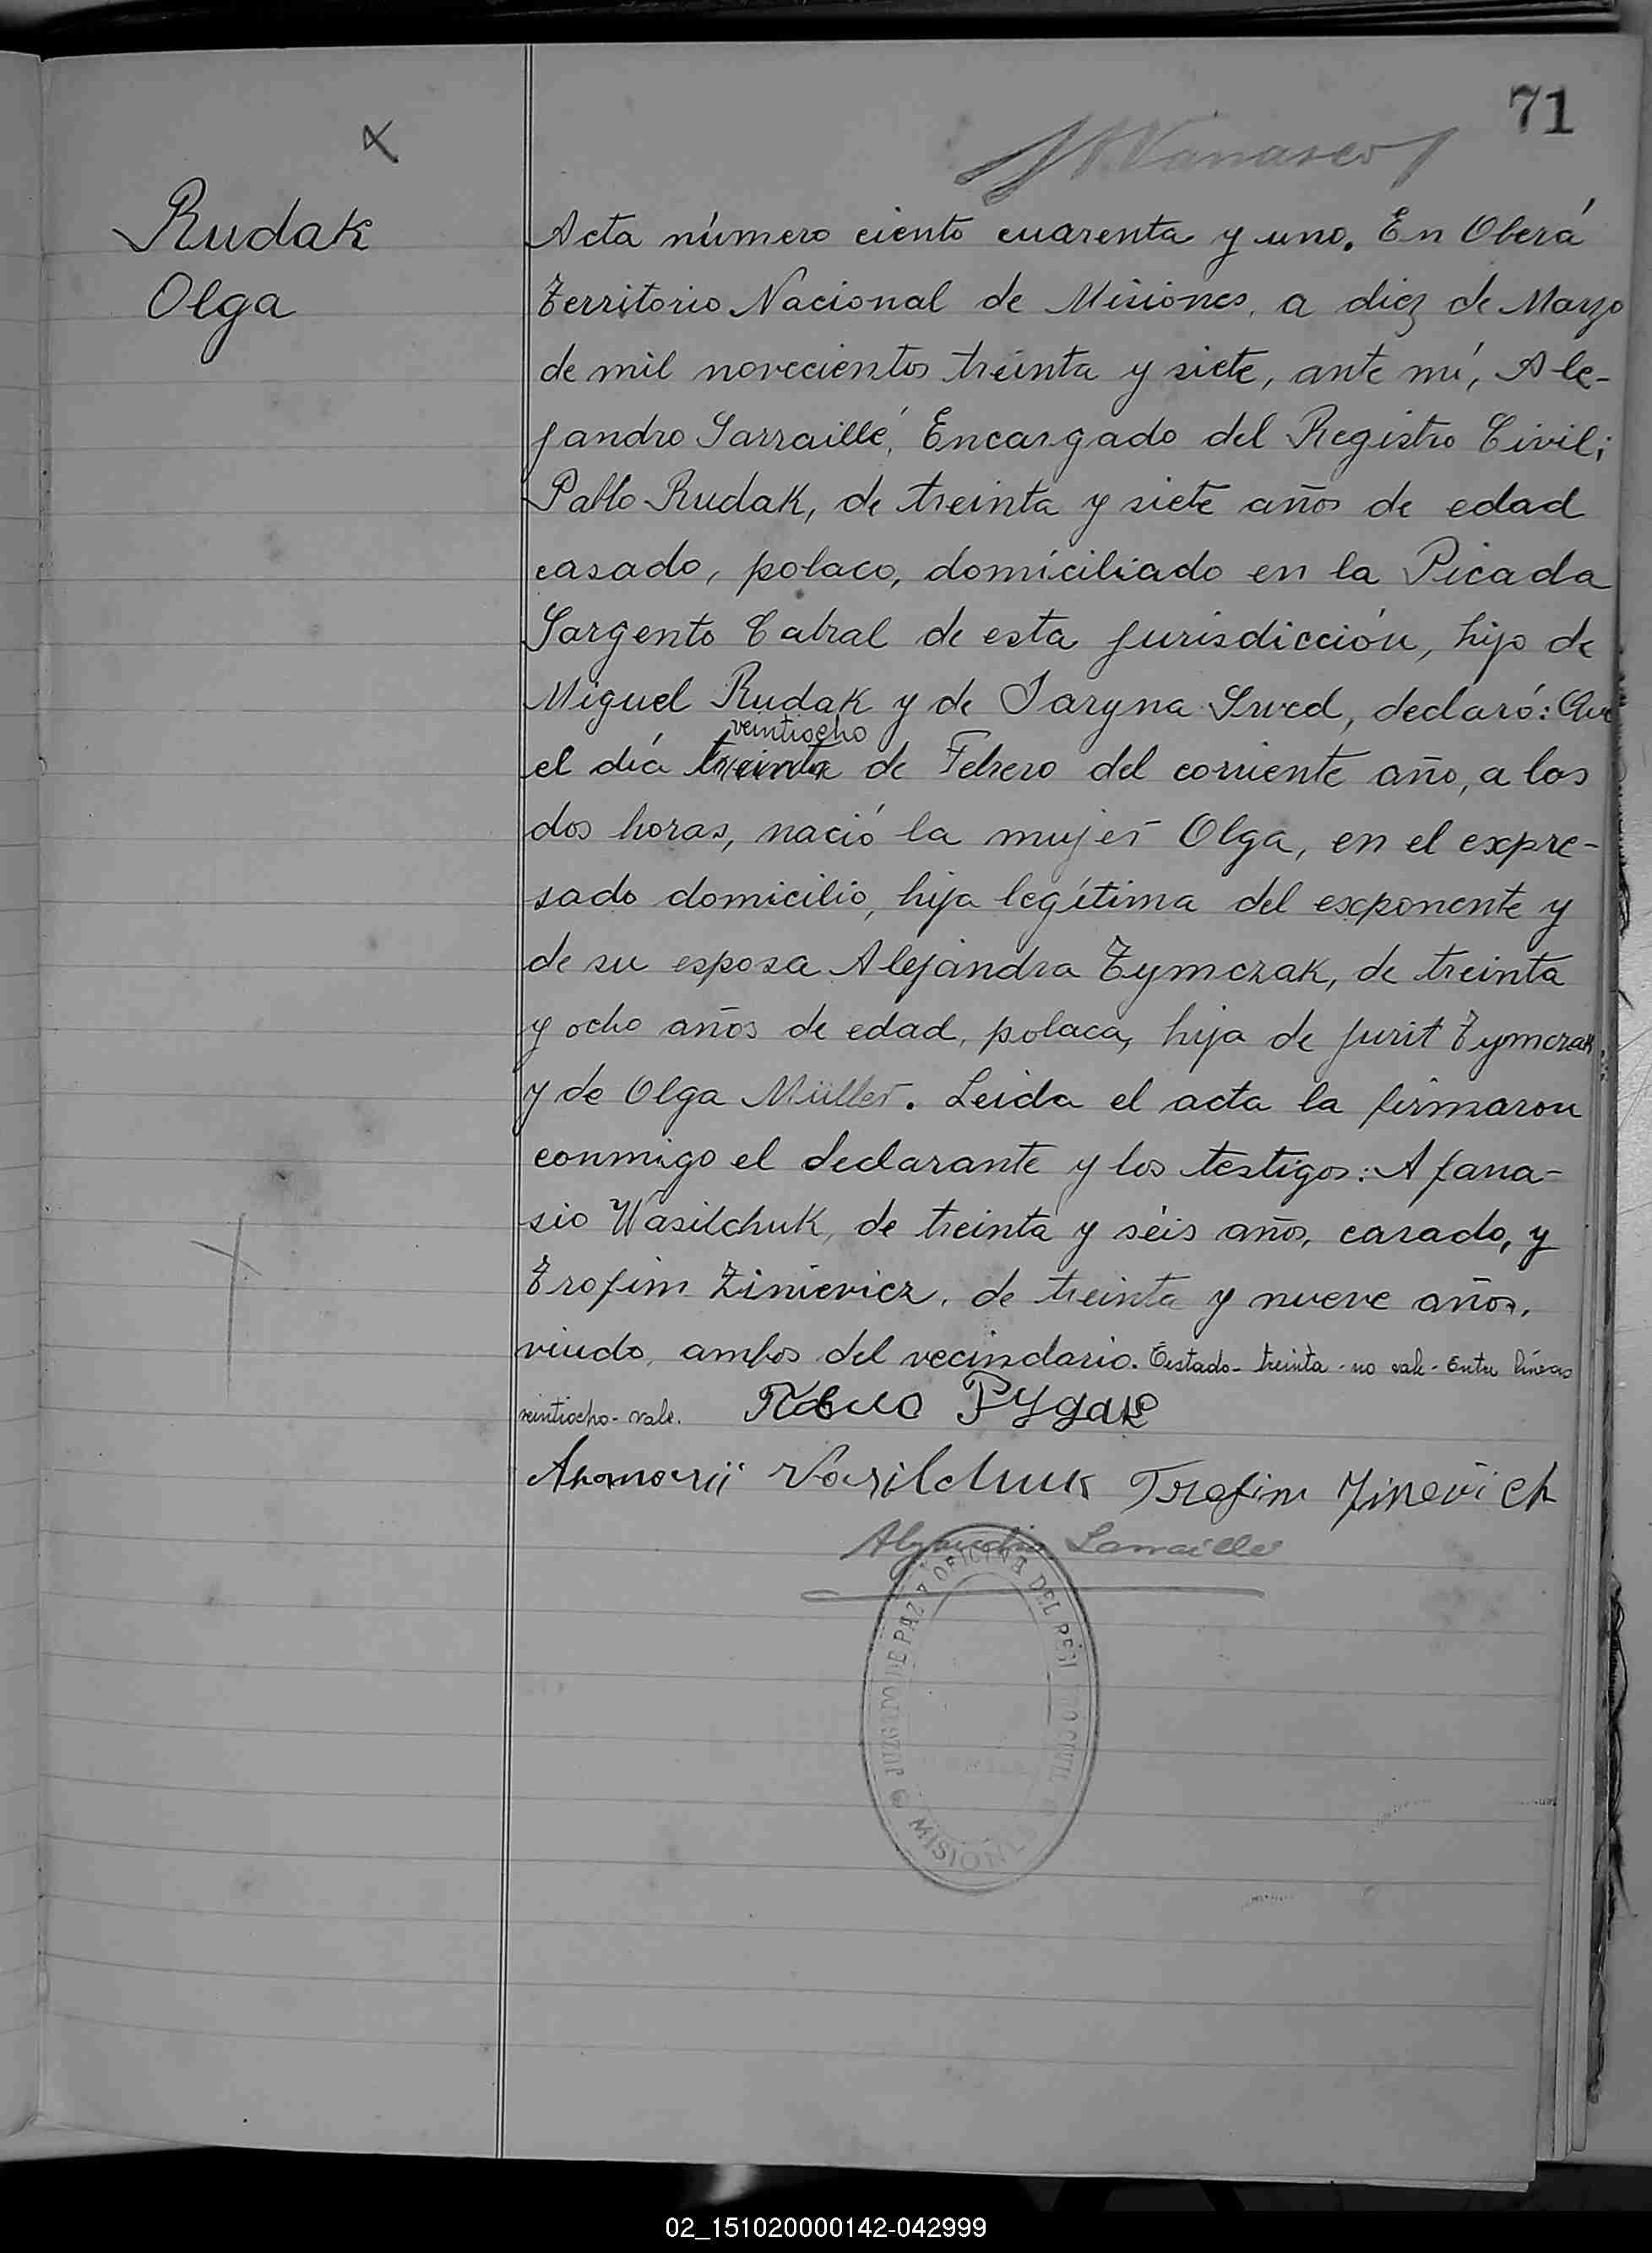 71
Rudak
Olga
Acta número ciento cuarenta y uno. En Oberá
Territorio Nacional de Misiones, a diez de Marzo
de mil novecientos treinta y siete, ante mí, Ale-
jandro Sarraillé, Encargado del Registro Civil;
Pablo Rudak, de treinta y siete años de edad
casado, polaco, domiciliado en la Picada
Sargento Cabral de esta jurisdicción, hijo de
Miguel Rudak y de Taryna Swed, declaró: Que
veintiocho
el día treinta de Febrero del corriente año, a las
dos horas, nació la mujer Olga, en el expre-
sado domicilio, hija legítima del exponente y
de su esposa Alejandra Tymczak, de treinta
y ocho años de edad, polaca, hija de Jurit Tymczak
y de Olga Müller. Leida el acta la firmaron
conmigo el declarante y los testigos: Afana-
sio Wasilchuk, de treinta y séis años, casado, y
Trofim Ziniewicz, de treinta y nueve años,
viudo, ambos del vecindario. Testado - treinta - no vale - Entre líneas
veintiocho - vale.
Vasilchuk Trofim Zinovich
Alejandro Sarraillé
JUZGADO DE PAZ Y OFICINA DEL REGISTRO CIVIL
MISIONES
02_151020000142-042999